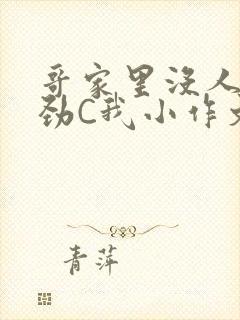 哥家里没人
劲C我小作文
青萍